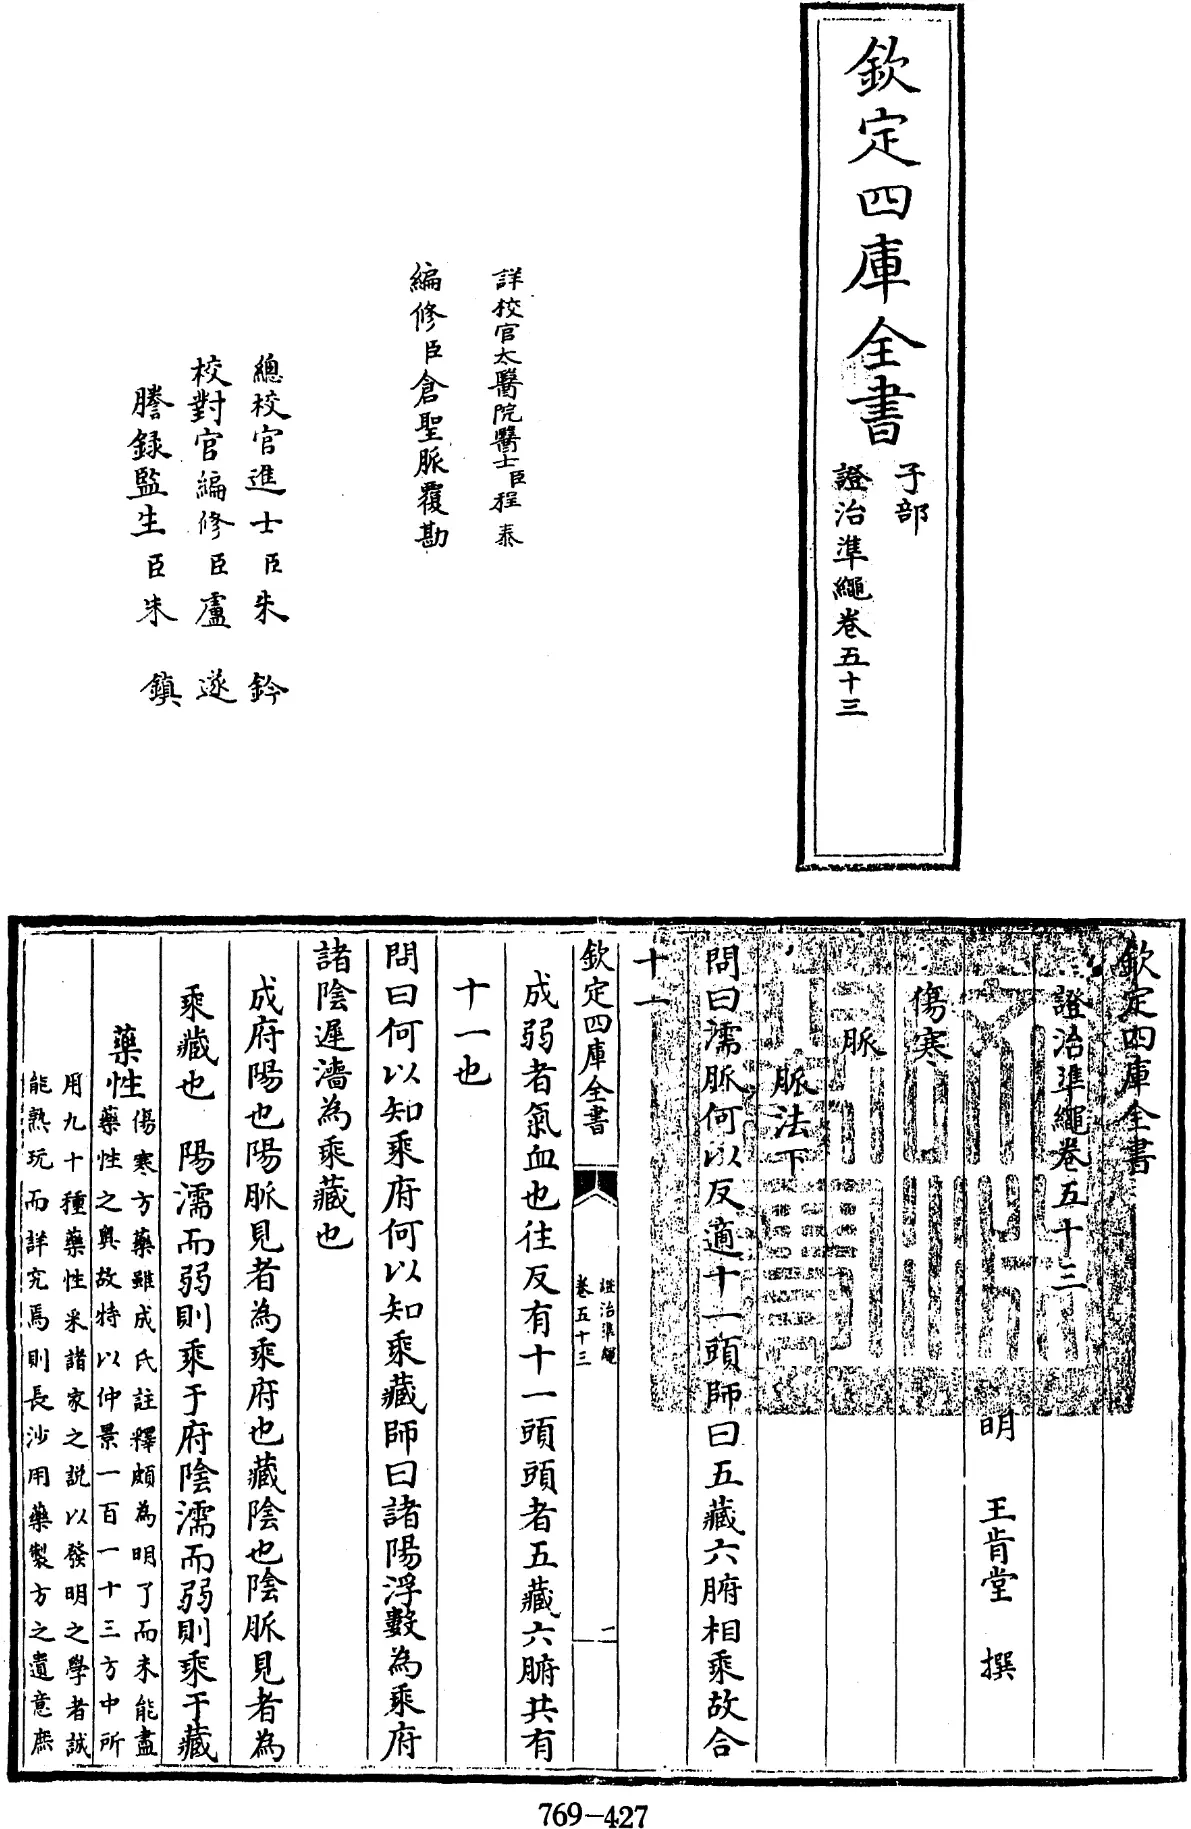 欽定四庫全書
子部
證治準繩卷五十三
詳校官太醫院醫士臣程泰
編修臣倉聖脈覆勘
總校官進士臣朱鈐
校對官編修臣盧遂
謄錄監生臣朱鎮
欽定四庫全書
證治準繩卷五十三
明 王肯堂 撰
傷寒
脈
脈法下
問曰濡脈何以反適十一頭師曰五藏六腑相乘故合
十一
欽定四庫全書
證治準繩
卷五十三
二
成弱者氣血也往反有十一頭頭者五藏六腑共有
十一也
問曰何以知乘府何以知乘藏師曰諸陽浮數為乘府
諸陰遲濇為乘藏也
成府陽也陽脈見者為乘府也藏陰也陰脈見者為
乘藏也 陽濡而弱則乘于府陰濡而弱則乘于藏
藥性
傷寒方藥雖成氏註釋頗為明了而未能盡
藥性之奧故特以仲景一百一十三方中所
用九十種藥性采諸家之説以發明之學者誠
能熟玩而詳究焉則長沙用藥製方之遺意庶
769-427